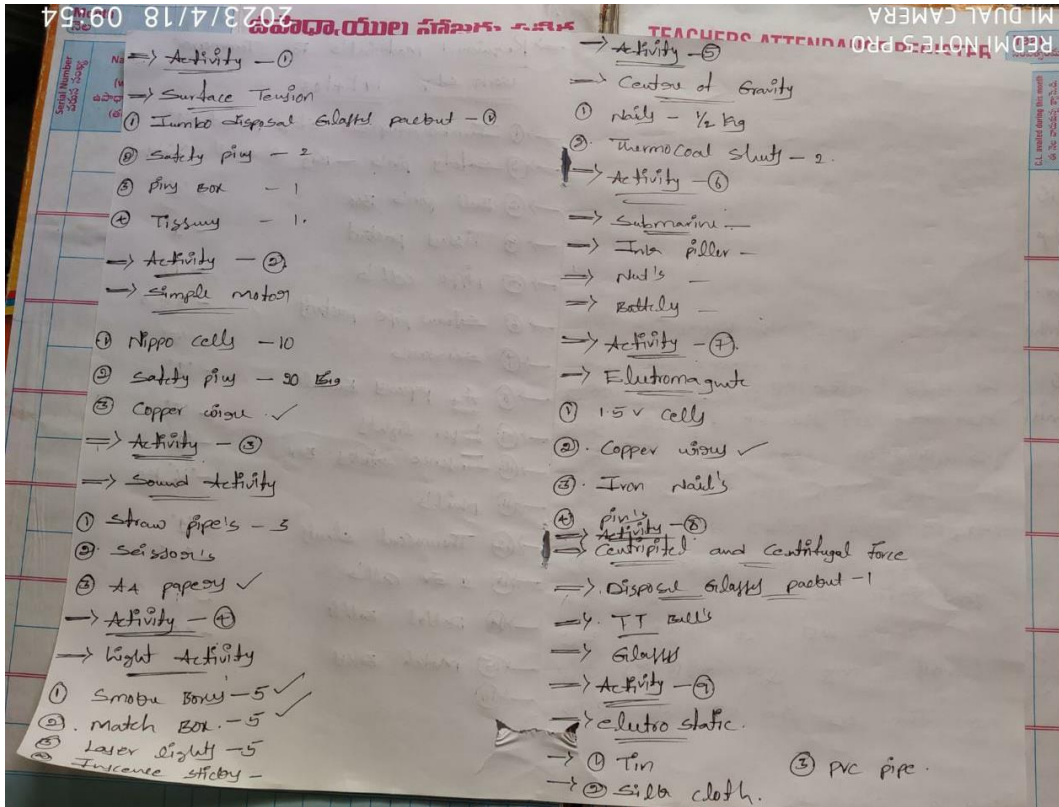 2023/4/18 09:54
REDMI NOTE 5 PRO
MI DUAL CAMERA
ఉపాధ్యాయుల హాజరు
TEACHERS ATTENDANCE REGISTER
Serial Number
వరుస సంఖ్య
C.L. availed during this month
=> Activity - ①
=> Surface Tension
① Jumbo disposal Glasses packet - ①
② safety pins - 2
③ pins Box - 1
④ Tissuey - 1.
=> Activity - ②
=> Simple motor
① Nippo cells - 10
② safety pins - 20 Big.
③ Copper wire ✓
=> Activity - ③
=> Sound Activity
① Straw pipe's - 5
② Seissdor's
③ A4 papers ✓
=> Activity - ④
=> Light Activity
① Smoke Boxes - 5 ✓
② match Box. - 5 ✓
③ Laser lights - 5
④ Inscence sticks -
=> Activity - ⑤
=> Centre of Gravity
① Nails - 1/2 kg
②. Thermocoal sheets - 2.
=> Activity - ⑥
=> Submarine -
=> Ink filler -
=> Nut's -
=> Bottely -
=> Activity - ⑦.
=> Elutromagnete
① 1.5 v cells
②. Copper wires ✓
③. Iron Nail's
④ pin's
=> Activity - ⑧
=> Centripitel and Centrifugal Force
=> Disposal Glasses packet - 1
=>. TT Ball's
=> Glasses
=> Activity - ⑨
=> elutro static.
-> ① Tin
③ PVC pipe.
-> ② Silk cloth.